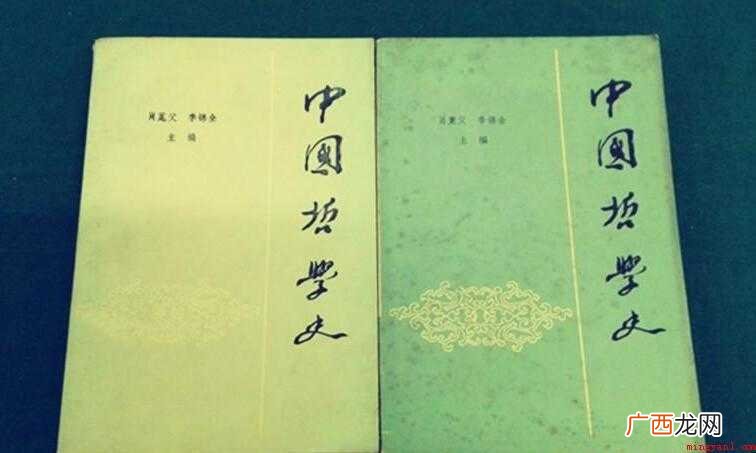 肖萐父 李锦全
主编
中國哲學史
肖萐父 李锦全
主编
中國哲學史
广西龙网
mingyan1.com